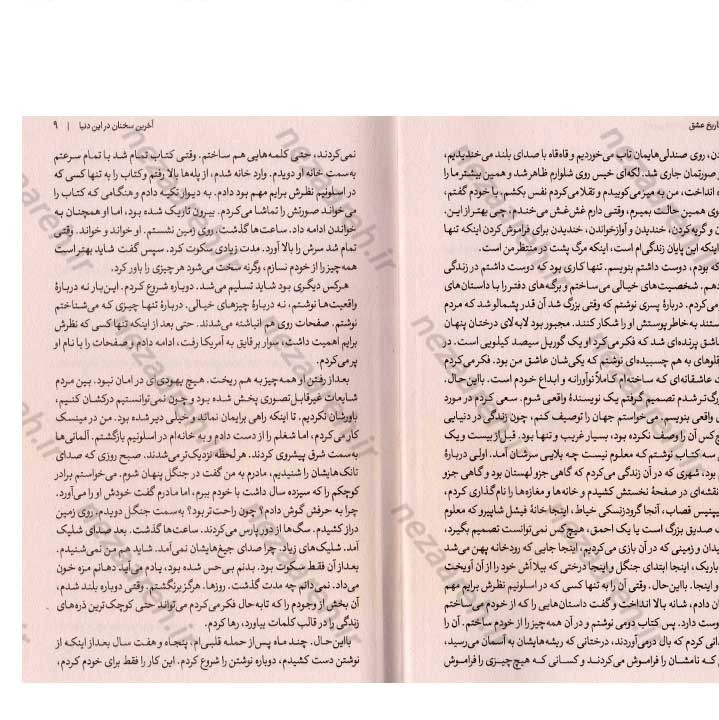 تاریخ عشق
دن، روی صندلی‌هایمان تاب می‌خوردیم و قاه‌قاه با صدای بلند می‌خندیدیم،
صورتمان جاری شد. لکه‌ای خیس روی شلوارم ظاهر شد و همین بیشتر ما را
انداخت، من به میز می‌کوبیدم و تقلا می‌کردم نفس بکشم، با خودم گفتم،
وی همین حالت بمیرم، وقتی دارم غش‌غش می‌خندم، چی بهتر از این.
و گریه‌کردن، خندیدن و آوازخواندن، خندیدن برای فراموش‌کردن اینکه تنها
اینکه این پایان زندگی‌ام است، اینکه مرگ پشت در منتظر من است.
که بودم، دوست داشتم بنویسم. تنها کاری بود که دوست داشتم در زندگی
دهم. شخصیت‌های خیالی می‌ساختم و برگه‌های دفتر را با داستان‌های
می‌کردم. دربارهٔ پسری نوشتم که وقتی بزرگ شد آن قدر پشمالو شد که مردم
ستند به خاطر پوستش او را شکار کنند. مجبور بود لابه‌لای درختان پنهان
عاشق پرنده‌ای شد که فکر می‌کرد او یک گوریل سیصد کیلویی است. در
قلوهای به هم چسبیده‌ای نوشتم که یکی‌شان عاشق من بود. فکر می‌کردم
ت عاشقانه‌ای که ساخته‌ام کاملاً نوآورانه و ابداع خودم است. بااین‌حال،
رگ‌تر شدم تصمیم گرفتم یک نویسندهٔ واقعی شوم. سعی کردم در مورد
ی واقعی بنویسم. می‌خواستم جهان را توصیف کنم، چون زندگی در دنیایی
چ‌کس آن را وصف نکرده بود، بسیار غریب و تنها بود. قبل از بیست و یک
سه کتاب نوشتم که معلوم نیست چه بلایی سرشان آمد. اولی دربارهٔ
بود، شهری که در آن زندگی می‌کردم که گاهی جزو لهستان بود و گاهی جزو
نقشه‌ای در صفحهٔ نخستش کشیدم و خانه‌ها و مغازه‌ها را نام‌گذاری کردم،
یپنیس قصاب، آنجا گرودزنسکی خیاط، اینجا خانهٔ فیشل شاپیرو که معلوم
صدیق بزرگ است یا یک احمق، هیچ‌کس نمی‌توانست تصمیم بگیرد،
یدان و زمینی که در آن بازی می‌کردیم، اینجا جایی که رودخانه پهن می‌شد
باریک، اینجا ابتدای جنگل و اینجا درختی که بیلا آش خود را از آن آویخت
و اینجا. بااین‌حال، وقتی آن را به تنها کسی که در اسلونیم نظرش برایم مهم
ان دادم، شانه بالا انداخت و گفت داستان‌هایی را که از خودم می‌ساختم
وست دارد. پس کتاب دومی نوشتم و در آن همه‌چیز را از خودم ساختم. آن را
دانی کردم که بال درمی‌آوردند، درختانی که ریشه‌هایشان به آسمان می‌رسید،
که نامشان را فراموش می‌کردند و کسانی که هیچ‌چیزی را فراموش
آخرین سخنان در این دنیا | ۹
نمی‌کردند، حتی کلمه‌هایی هم ساختم. وقتی کتاب تمام شد با تمام سرعتم
به‌سمت خانهٔ او دویدم. وارد خانه شدم، از پله‌ها بالا رفتم و کتاب را به تنها کسی که
در اسلونیم نظرش برایم مهم بود دادم. به دیوار تکیه دادم و هنگامی که کتاب را
می‌خواند صورتش را تماشا می‌کردم. بیرون تاریک شده بود، اما او همچنان به
خواندن ادامه داد. ساعت‌ها گذشت. روی زمین نشستم. او خواند و خواند. وقتی
تمام شد سرش را بالا آورد. مدت زیادی سکوت کرد. سپس گفت شاید بهتر است
همه‌چیز را از خودم نسازم، وگرنه سخت می‌شود هر چیزی را باور کرد.
هرکس دیگری بود شاید تسلیم می‌شد. دوباره شروع کردم. این‌بار نه دربارهٔ
واقعیت‌ها نوشتم، نه دربارهٔ چیزهای خیالی. دربارهٔ تنها چیزی که می‌شناختم
نوشتم. صفحات روی هم انباشته می‌شدند. حتی بعد از اینکه تنها کسی که نظرش
برایم اهمیت داشت، سوار بر قایق به آمریکا رفت، ادامه دادم و صفحات را با نام او
پر می‌کردم.
بعد از رفتن او همه‌چیز به هم ریخت. هیچ یهودی‌ای در امان نبود. بین مردم
شایعات غیرقابل‌تصوری پخش شده بود و چون نمی‌توانستیم درکشان کنیم،
باورشان نکردیم. تا اینکه راهی برایمان نماند و خیلی دیر شده بود. من در مینسک
کار می‌کردم، اما شغلم را از دست دادم و به خانه‌ام در اسلونیم بازگشتم. آلمانی‌ها
به‌سمت شرق پیشروی کردند. هر لحظه نزدیک‌تر می‌شدند. صبح روزی که صدای
تانک‌هایشان را شنیدیم، مادرم به من گفت در جنگل پنهان شوم. می‌خواستم برادر
کوچکم را که سیزده سال داشت با خودم ببرم، اما مادرم گفت خودش او را می‌آورد.
چرا به حرفش گوش دادم؟ چون راحت‌تر بود؟ به‌سمت جنگل دویدم. روی زمین
دراز کشیدم. سگ‌ها از دور پارس می‌کردند. ساعت‌ها گذشت. بعد صدای شلیک
آمد. شلیک‌های زیاد. چرا صدای جیغ‌هایشان نمی‌آمد. شاید هم من نمی‌شنیدم.
بعد از آن فقط سکوت بود. بدنم بی‌حس شده بود، یادم می‌آید دهانم مزه خون
می‌داد. نمی‌دانم چه مدت گذشت. روزها. هرگز برنگشتم. وقتی دوباره بلند شدم،
آن بخش از وجودم را که تا به حال فکر می‌کردم می‌تواند حتی کوچک‌ترین ذره‌های
زندگی را در قالب کلمات بیاورد، رها کردم.
بااین‌حال، چند ماه پس از حمله قلبی‌ام، پنجاه و هفت سال بعد از اینکه از
نوشتن دست کشیدم، دوباره نوشتن را شروع کردم. این کار را فقط برای خودم کردم،